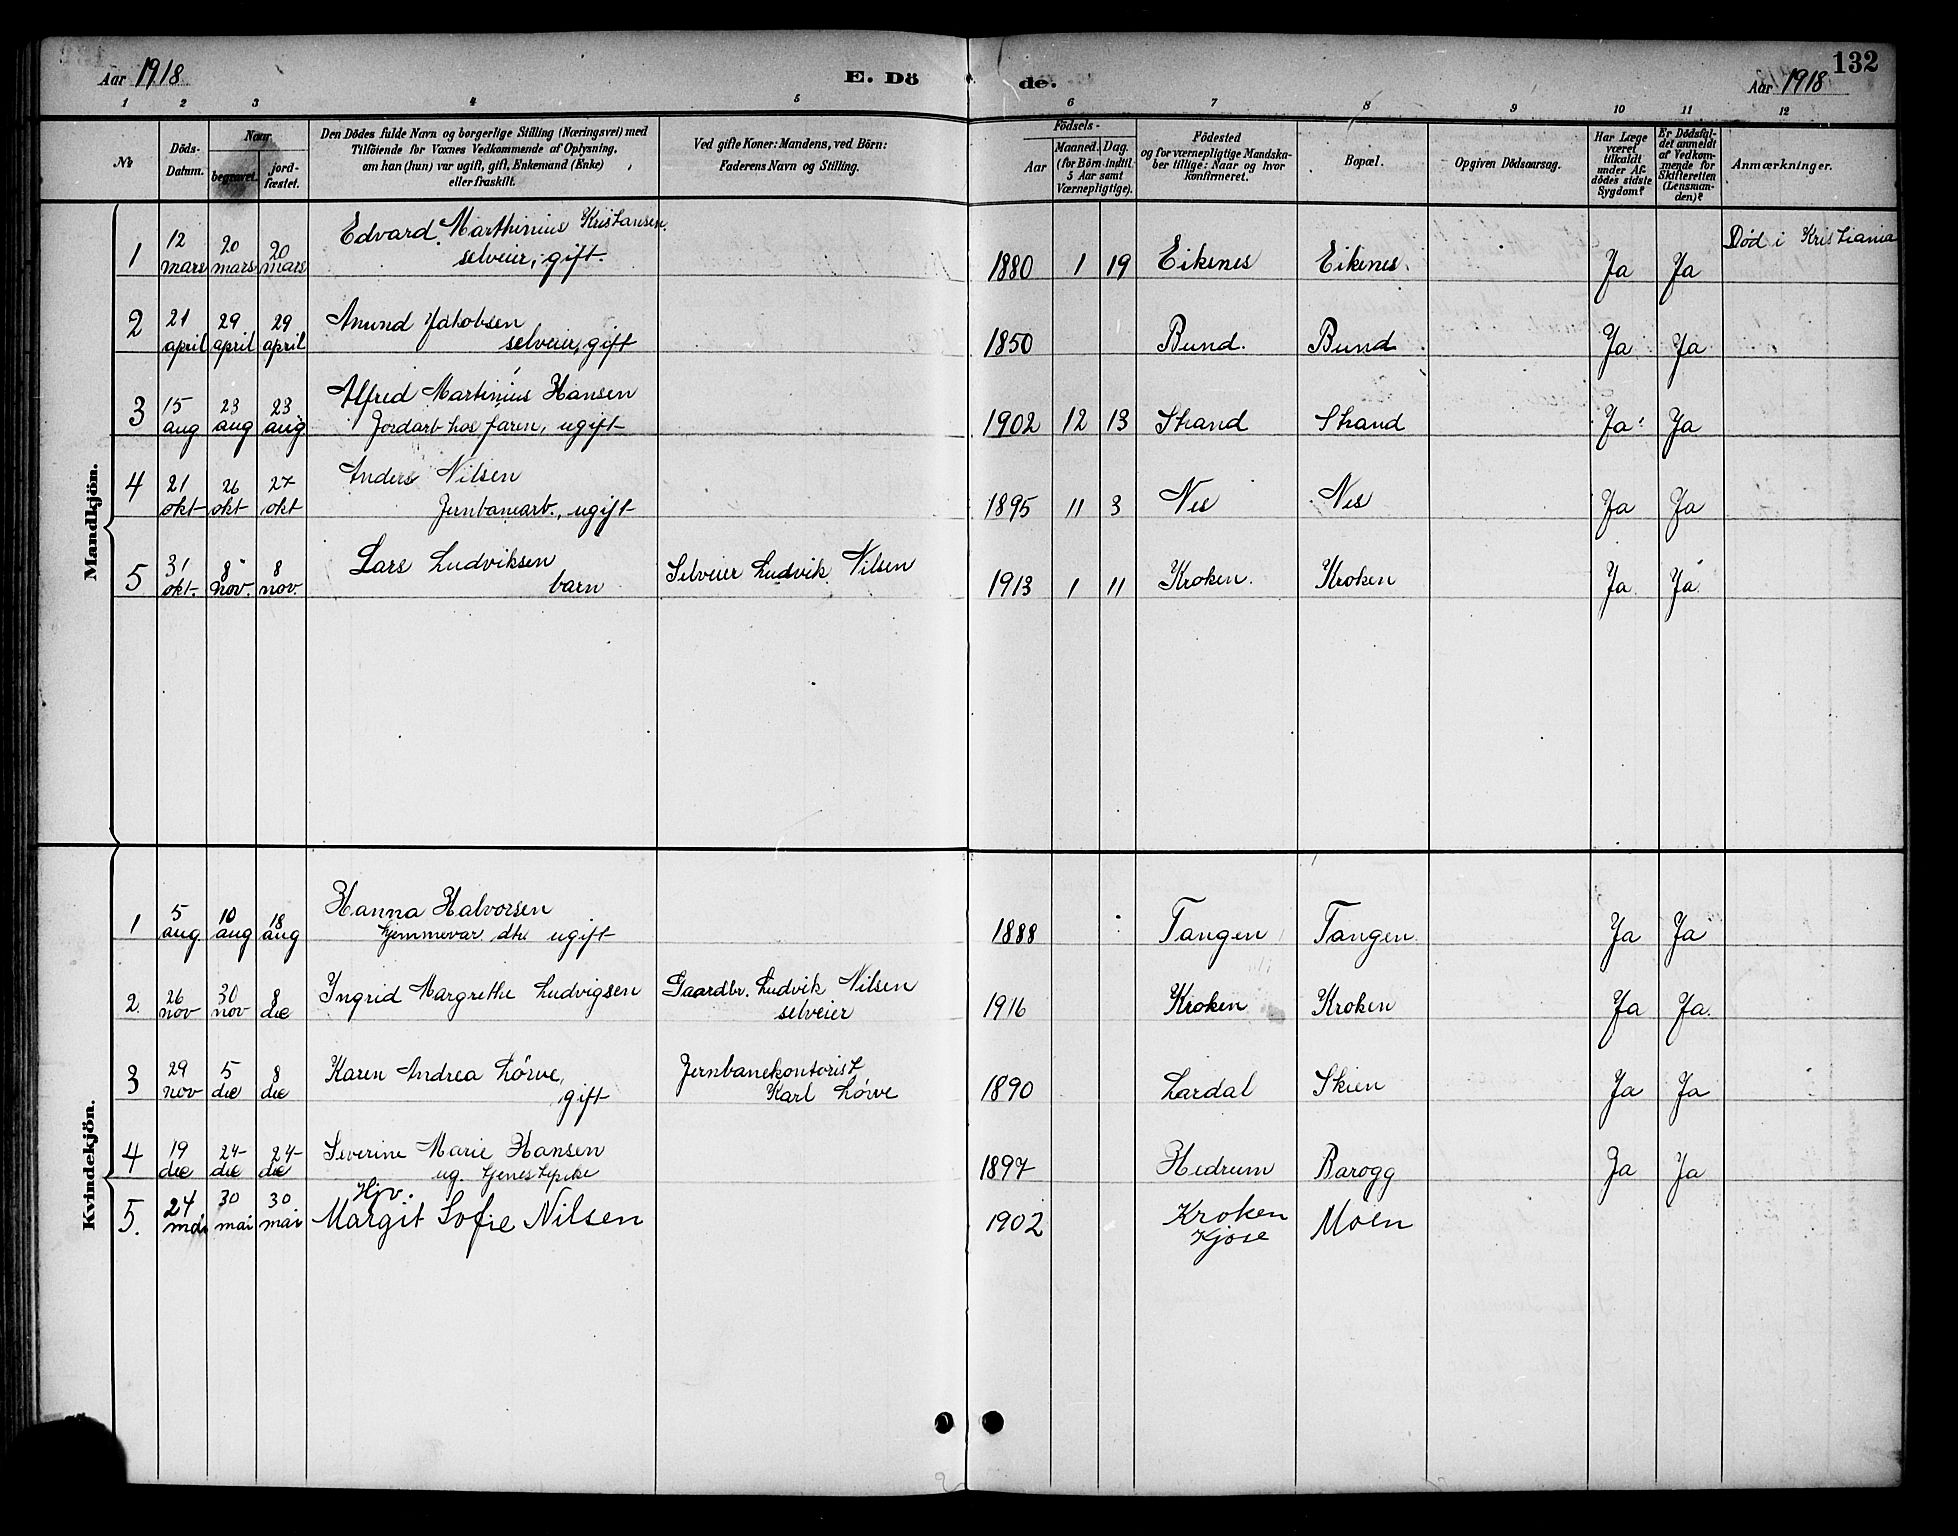 Aar 1918
E. Dö
de.
Aar 1918
132
1 2 3 4 5 6 7 8 9 10 11 12
No
Döds-Datum.
Naar
begravet.
jord-fæstet.
Den Dödes fulde Navn og borgerlige Stilling (Næringsvei) med
Tilföiende for Voxnes Vedkommende af Oplysning,
om han (hun) var ugift, gift, Enkemand (Enke)
eller fraskilt.
Ved gifte Koner: Mandens, ved Börn:
Faderens Navn og Stilling.
Födsels-
Aar
Maaned. Dag.
(for Börn indtil
5 Aar samt
Værnepligtige).
Födested
og for værnepligtige Mandska-
ber tillige: Naar og hvor
konfirmeret.
Bopæl.
Opgiven Dödsaarsag.
Har Læge
været
tilkaldt
under Af-
dödes sidste
Sygdom?
Er Dödsfal-
det anmeldt
af Vedkom-
mende for
Skifteretten
(Lensman-
den)?
Anmærkninger.
Mandkjön.
1 12 mars 20 mars 20 mars Edvard Marthinius Kristiansen
selveier, gift. 1880 1 19 Eikenes Eikenes. Ja Ja Död i Kristiania
2 21 april 29 april 29 april Anund Jakobsen
selveier, gift 1850 Bund. Bund Ja Ja
3 15 aug 23 aug 23 aug Alfred Martinius Hansen
Jordarb hos faren, ugift 1902 12 13 Strand Strand Ja Ja
4 21 okt 26 okt 27 okt Anders Nilsen
Jernbanearb., ugift 1895 11 3 Nes Nes Ja Ja
5 31 okt. 8 nov. 8 nov. Lars Ludviksen
barn Selveier Ludvik Nilsen 1913 1 11 Kroken. Kroken Ja Ja
Kvindekjön.
1 5 aug 10 aug 18 aug Hanna Halvorsen
hjemmevær. dtr. ugift 1888 Tangen Tangen Ja Ja
2. 26 nov 30 nov 8 dec Ingrid Margrethe Ludvigsen Gaardbr. Ludvik Nilsen
selveier 1916 Kroken Kroken Ja Ja.
3 29 nov 5 dec 8 dec Karen Andrea Lörve, Jernbanekontorist
gift Karl Lörve 1890 Lardal Skien Ja Ja
4 19 dec 24 dec 24 dec Severine Marie Hansen
ug. tjenestepike 1897 Hedrum Barogg Ja Ja
Hjv.
5. 24 mai 30 mai 30 mai Margit Sofie Nilsen 1902 Kroken Moen
Kjose